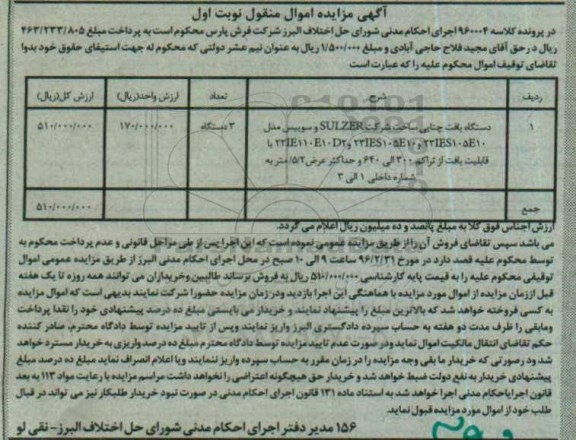 آگهی مزایده اموال منقول نوبت اول
در پرونده کلاسه ۹۶۰۰۰۴ اجرای احکام مدنی شورای حل اختلاف البرز شرکت فرش پارس محکوم است به پرداخت مبلغ ۴۶۳/۲۳۳/۸۰۵
ریال در حق آقای مجید فلاح حاجی آبادی و مبلغ ۱/۵۰۰/۰۰۰ ریال به عنوان نیم عشر دولتی که محکوم له جهت استیفای حقوق خود بدوا
تقاضای توقیف اموال محکوم علیه را که عبارت است
ردیف شرح تعداد ارزش واحد(ریال) ارزش کل(ریال)
۱ دستگاه بافت چنایی ساخت شرکت SULZER و سوییس مدل ۳ دستگاه ۱۷۰/۰۰۰/۰۰۰ ۵۱۰/۰۰۰/۰۰۰
۲۳IES۱۰۵E۱۰ و ۲۳IES۱۰۵E۱۰ و ۲۳IE۱۱۰E۱۰D۲ با
قابلیت بافت از تراکم ۳۰۰ الی ۶۴۰ و حداکثر عرض ۵/۲ متر به
شماره داخلی ۱ الی ۳
جمع ۵۱۰/۰۰۰/۰۰۰
ارزش اجناس فوق کلا به مبلغ پانصد و ده میلیون ریال اعلام می گردد.
می باشد سپس تقاضای فروش آن را از طریق مزایده عمومی نموده است که این اجرا پس از طی مراحل قانونی و عدم پرداخت محکوم به
توسط محکوم علیه قصد دارد در مورخ ۹۶/۲/۳۱ ساعت ۹ الی ۱۰ صبح در محل اجرای احکام مدنی البرز از طریق مزایده عمومی اموال
توقیفی محکوم علیه را به قیمت پایه کارشناسی ۵۱۰/۰۰۰/۰۰۰ ریال به فروش برساند طالبین وخریداران می توانند همه روزه تا یک هفته
قبل اززمان مزایده از اموال مورد مزایده با هماهنگی این اجرا بازدید ودر زمان مزایده حضورا شرکت نمایند بدیهی است که اموال مزایده
به کسی فروخته خواهد شد که بالاترین مبلغ را پیشنهاد نمایند و خریدار می بایستی مبلغ ده درصد پیشنهادی خود را نقدا پرداخت
ومابقی را ظرف مدت دو هفته به حساب سپرده دادگستری البرز واریز نمایند وپس از تایید مزایده توسط دادگاه محترم، صادر کننده
حکم تقاضای انتقال مالکیت اموال نماید ودر صورت عدم تایید مزایده توسط دادگاه محترم مبلغ ده درصد واریزی به خریدار مسترد خواهد
شد ودر صورتی که خریدار ما بقی وجه مزایده را در زمان مقرر به حساب سپرده واریز ننمایند ویا اعلام انصراف نماید مبلغ ده درصد مبلغ
پیشنهادی خریدار به نفع دولت ضبط خواهد شد و خریدار حق هیچگونه اعتراضی را نخواهد داشت مراسم مزایده با رعایت مواد ۱۱۳ به بعد
قانون اجرا یاحکام مدنی اجرا خواهد شد به استناد ماده ۱۳۱ قانون اجرای احکام مدنی در صورت نبود خریدار طلبکار نیز می تواند در قبال
طلب خود از اموال مورد مزایده قبول نماید.
۱۵۶ مدیر دفتر اجرای احکام مدنی شورای حل اختلاف البرز - نقی لو